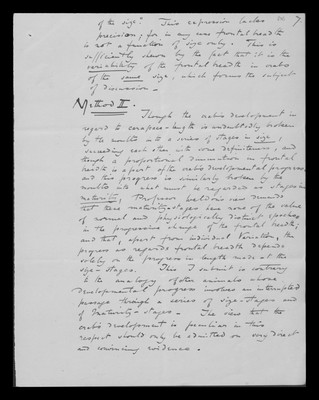 7
of the size." This expression lacks
precision; for in any case frontal breadth
is not a function of size only. This is
sufficiently shewn by the fact that it is the
variability of the frontal breadth in crabs
of the same size, which forms the subject
of discussion.
Method II.
Though the crab's development in
regard to carapace-length is undoubtedly broken
by the moults into a series of stages in size,
succeeding each other with some definiteness, and
though a proportional diminution in frontal
breadth is a part of the crab's developmental progress,
and this progress is similarly broken by the
moults into what must be regarded as stages in
maturity; Professor Weldon's view demands
that these maturity-stages have none of the value
of normal and physiologically distinct epochs
in the progressive change of the frontal breadth;
and that, apart from individual variation, the
progress as regards frontal breadth depends
solely on the progress in length made at the
size-stages. This I submit is contrary
to the analogy of other animals whose
developmental progress involves an interrupted
passage through a series of size-stages and
of maturity-stages. The view that the
crab's development is peculiar in this
respect should only be admitted on very direct
and convincing evidence.